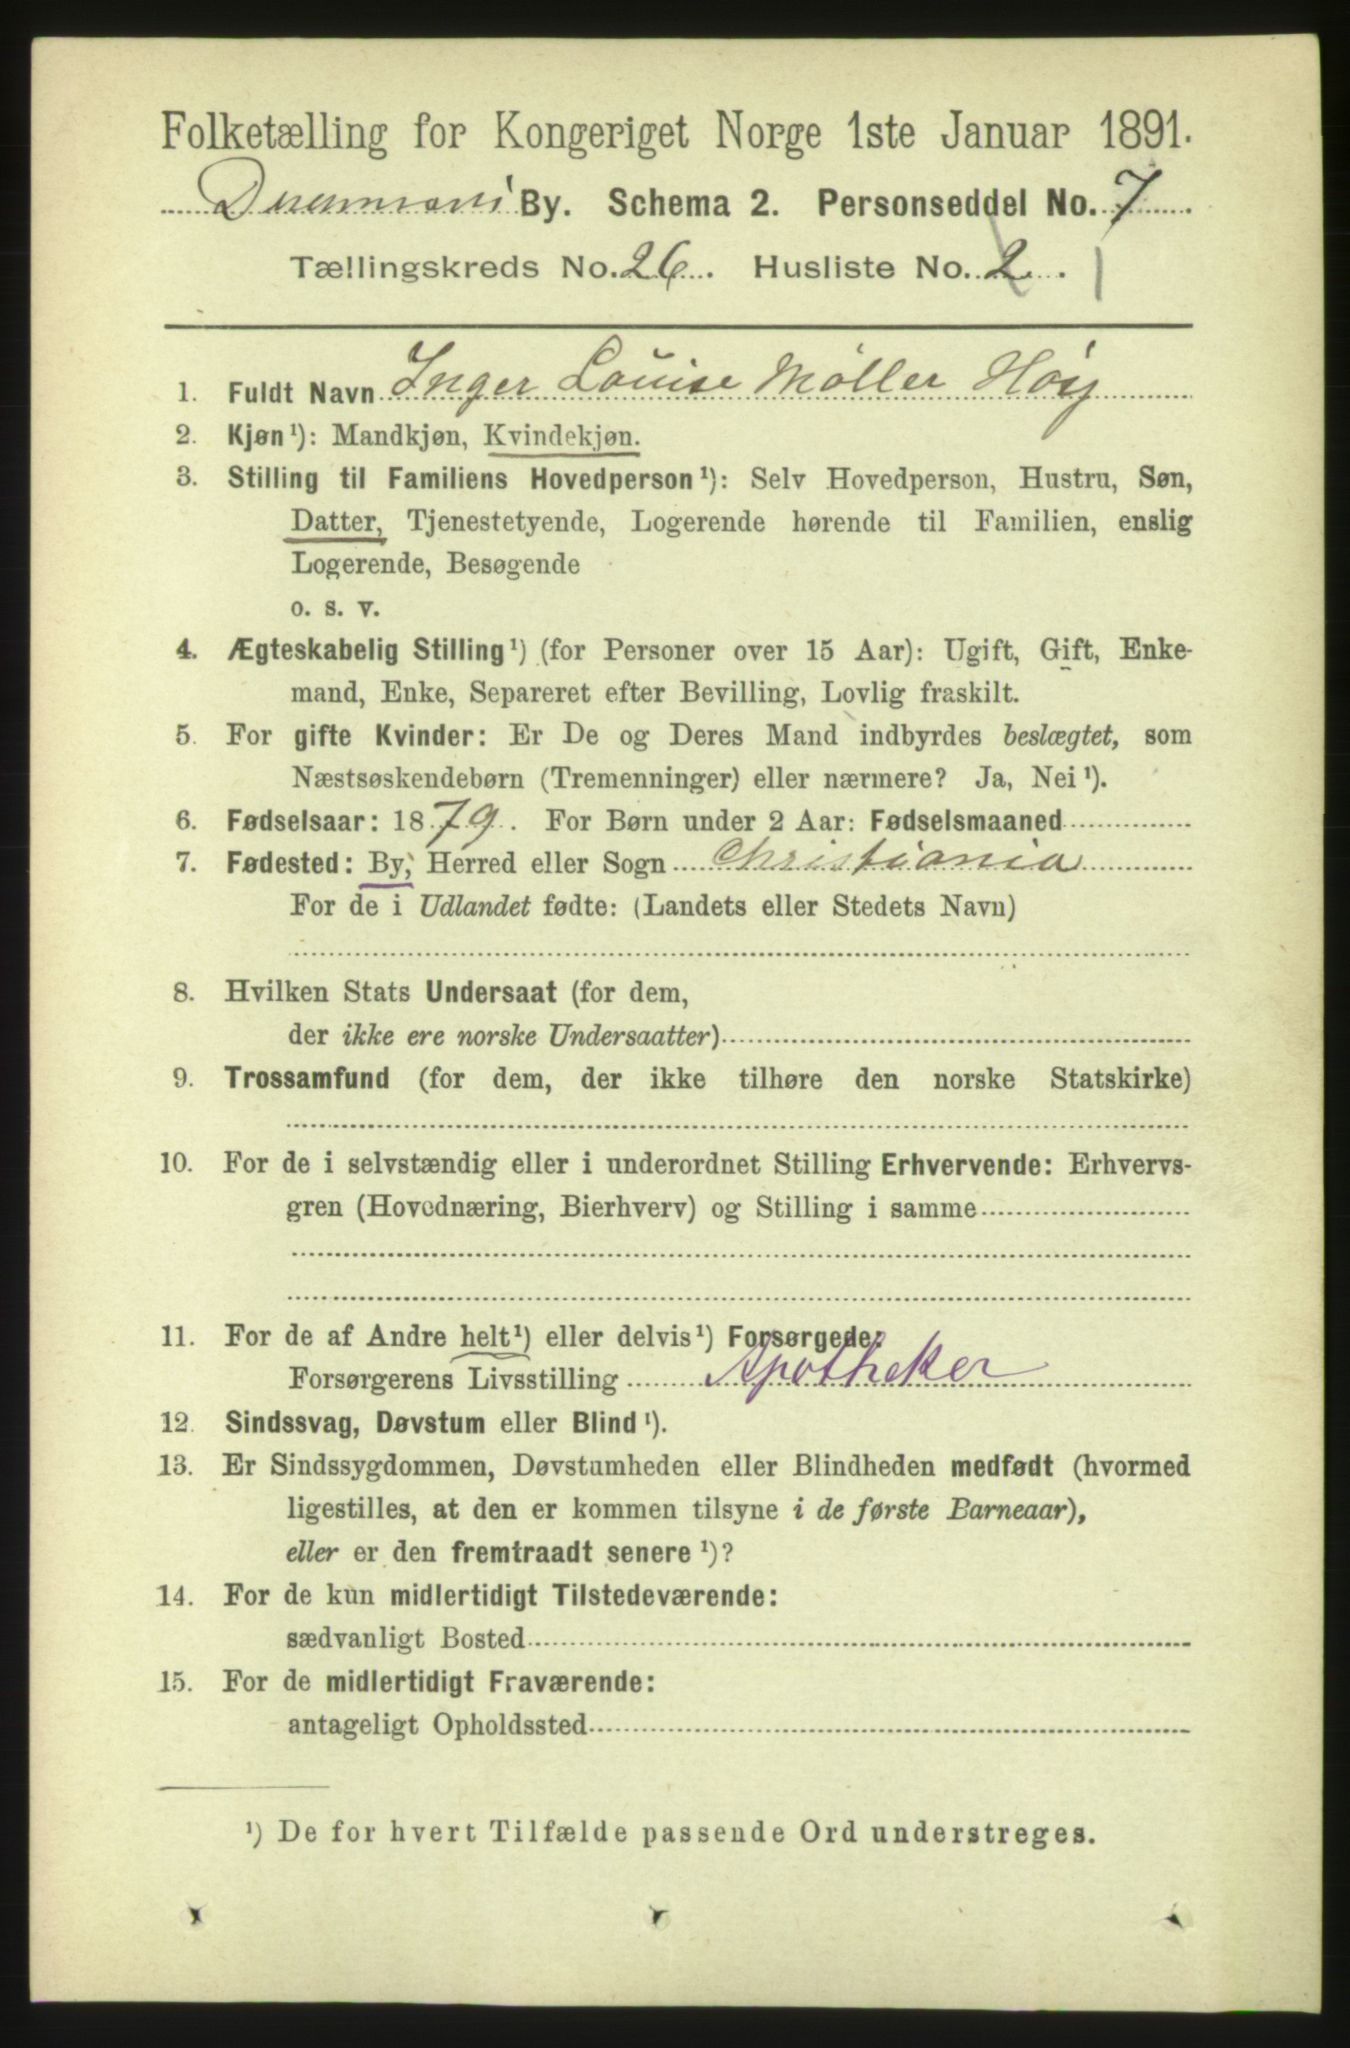 Folketælling for Kongeriget Norge 1ste Januar 1891.
Drammens By. Schema 2. Personseddel No. 7
Tællingskreds No. 26. Husliste No. 2. 1
1. Fuldt Navn Inger Louise Møller Høy
2. Kjøn¹): Mandkjøn, Kvindekjøn.
3. Stilling til Familiens Hovedperson¹): Selv Hovedperson, Hustru, Søn,
Datter, Tjenestetyende, Logerende hørende til Familien, enslig
Logerende, Besøgende
o. s. v.
4. Ægteskabelig Stilling¹) (for Personer over 15 Aar): Ugift, Gift, Enke-
mand, Enke, Separeret efter Bevilling, Lovlig fraskilt.
5. For gifte Kvinder: Er De og Deres Mand indbyrdes beslægtet, som
Næstsøskendebørn (Tremenninger) eller nærmere? Ja, Nei¹).
6. Fødselsaar: 1879. For Børn under 2 Aar: Fødselsmaaned
7. Fødested: By, Herred eller Sogn Christiania
For de i Udlandet fødte: (Landets eller Stedets Navn)
8. Hvilken Stats Undersaat (for dem,
der ikke ere norske Undersaatter)
9. Trossamfund (for dem, der ikke tilhøre den norske Statskirke)
10. For de i selvstændig eller i underordnet Stilling Erhvervende: Erhvervs-
gren (Hovednæring, Bierhverv) og Stilling i samme
11. For de af Andre helt¹) eller delvis¹) Forsørgede:
Forsørgerens Livsstilling Apotheker
12. Sindssvag, Døvstum eller Blind¹).
13. Er Sindssygdommen, Døvstumheden eller Blindheden medfødt (hvormed
ligestilles, at den er kommen tilsyne i de første Barneaar),
eller er den fremtraadt senere¹)?
14. For de kun midlertidigt Tilstedeværende:
sædvanligt Bosted
15. For de midlertidigt Fraværende:
antageligt Opholdssted
¹) De for hvert Tilfælde passende Ord understreges.